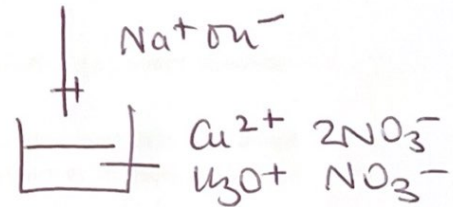 Na⁺ OH⁻
Cu²⁺ 2NO₃⁻
H₃O⁺ NO₃⁻